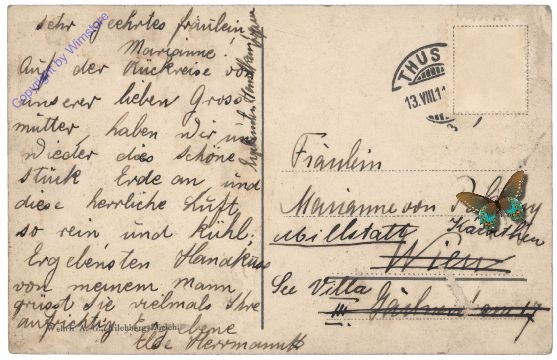 Sehr geehrtes Fräulein
Marianne!
Auf der Rückreise von
unserer lieben Gross-
mütter, haben wir uns
wieder dies schöne
stück Erde an und
diese herrliche Luft,
so rein und kühl.
Ergebensten Handkuss
von meinem Mann,
grüsst Sie vielmals Ihre
aufrichtig Ergebene
Else Herrmann
Copyright by Wimstore
THUS
13.VIII.1
Fräulein
Marianne von
Millstatt Kärnthen
Wien
See Villa
III